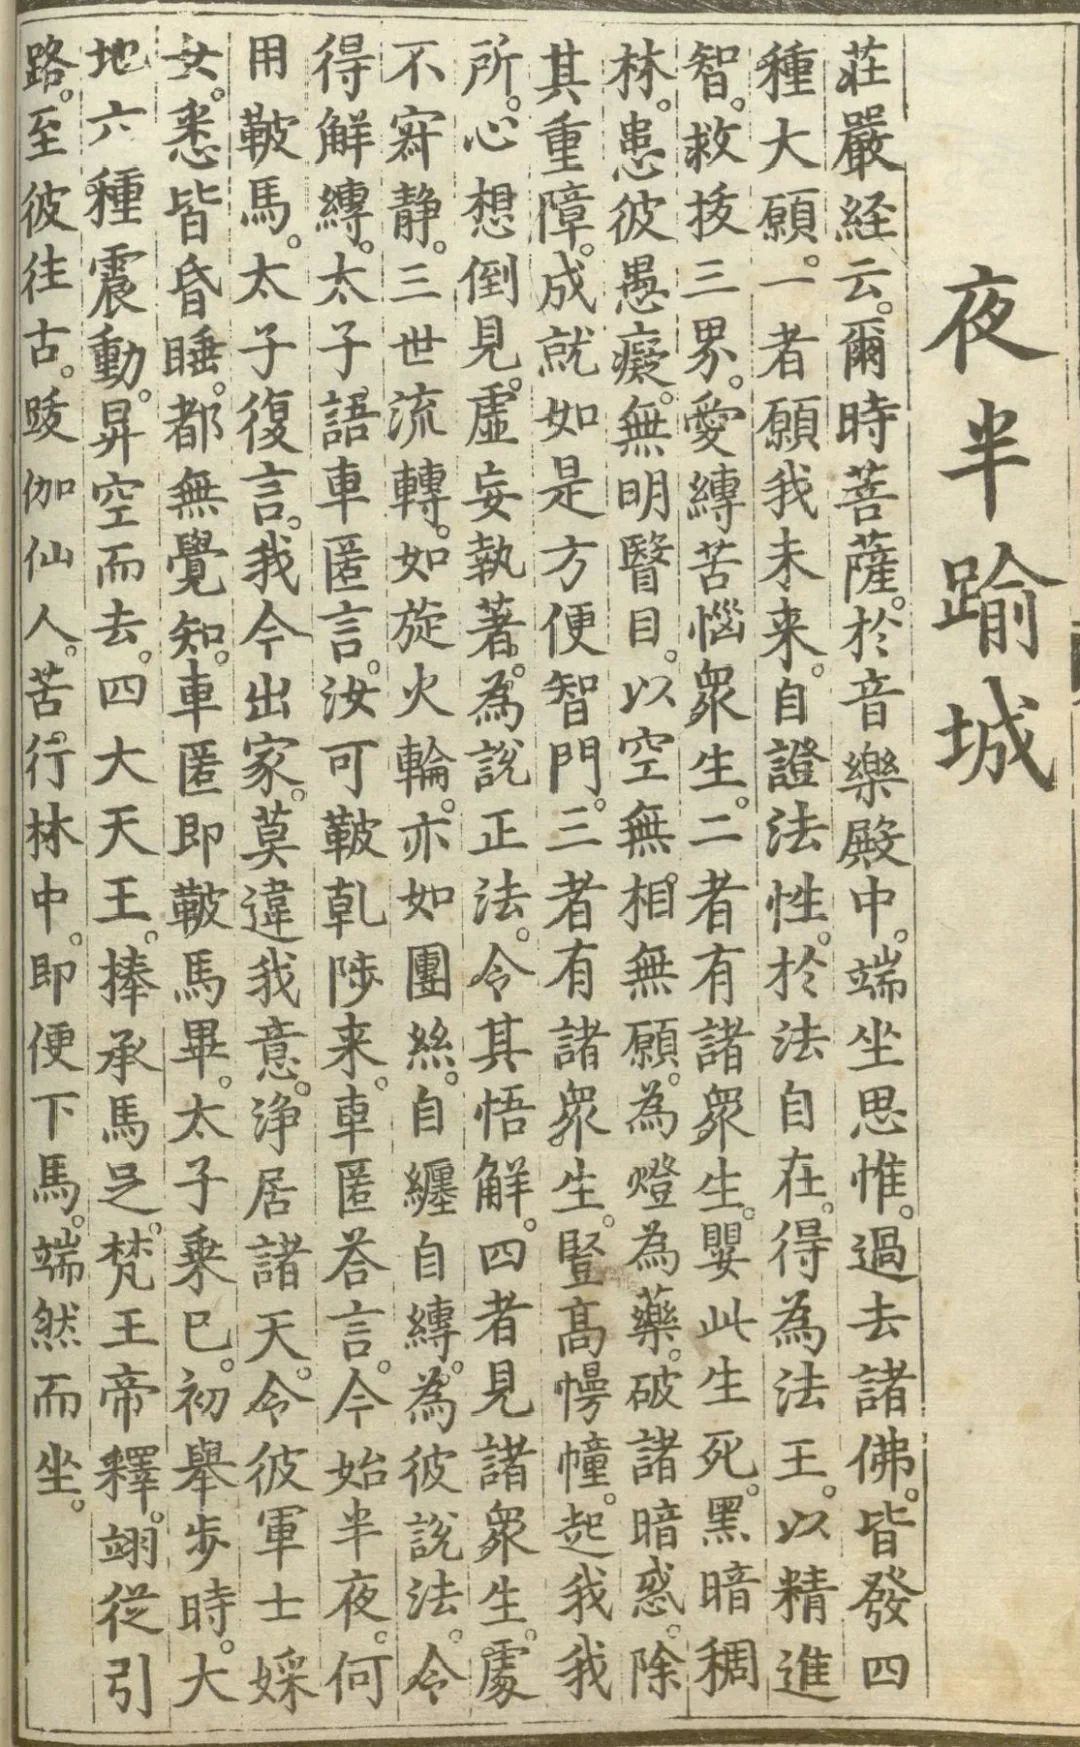 夜半踰城
莊嚴経云。爾時菩薩。於音樂殿中。端坐思惟。過去諸佛。皆發四
種大願。一者願我未来。自證法性。於法自在。得為法王。以精進
智。救拔三界。愛縛苦惱眾生。二者有諸眾生。嬰此生死。黑暗稠
林。患彼愚癡。無明瞖目。以空無相。無願。為燈為藥。破諸暗惑。除
其重障。成就如是方便智門。三者有諸眾生。豎高慢幢。起我我
所。心想倒見。虛妄執著。為說正法。令其悟解。四者見諸眾生。處
不寂静。三世流轉。如旋火輪。亦如團絲。自纏自縛。為彼說法。令
得解縛。太子語車匿言。汝可鞁乹陟来。車匿荅言。今始半夜。何
用鞁馬。太子復言。我今出家。莫違我意。淨居諸天。令彼軍士婇
女。悉皆昏睡。都無覺知。車匿即鞁馬畢。太子乗已。初舉步時。大
地六種震動。昇空而去。四大天王。捧承馬足。梵王帝釋。翊從引
路。至彼往古。䟦伽仙人。苦行林中。即便下馬。端然而坐。